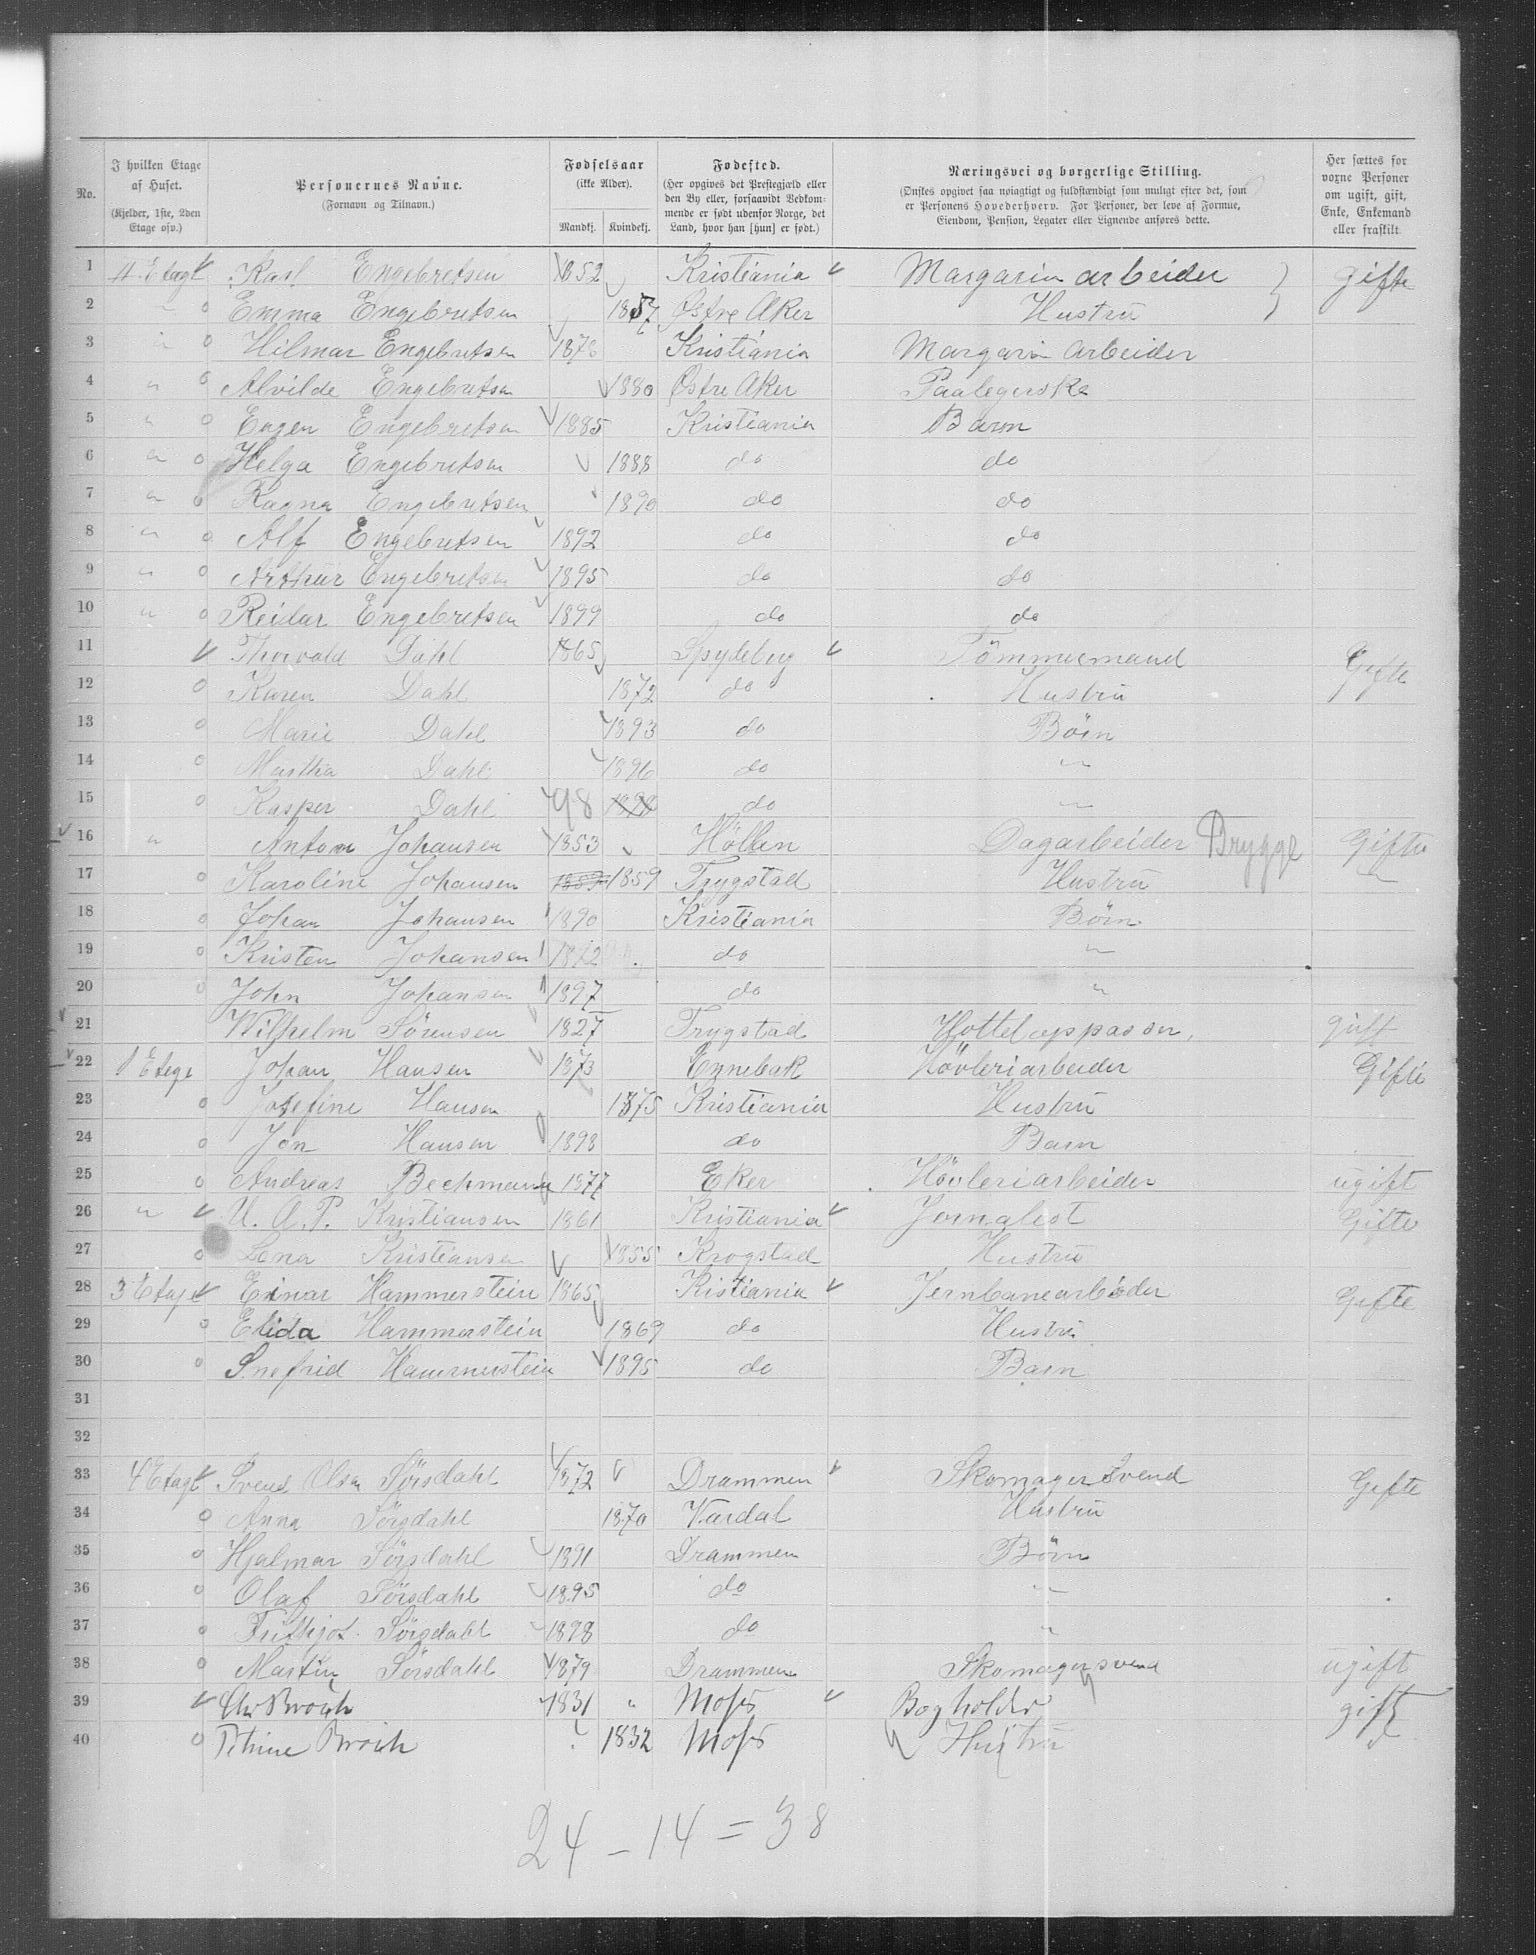 No.
I hvilken Etage af Huset. (Kjelder, 1ste, 2den Etage osv.)
Personernes Navne. (Fornavn og Tilnavn.)
Fødselsaar (ikke Alder). Mandkj. Kvindekj.
Fødested. (Her opgives det Prestegjæld eller den By eller, forsaavidt Vedkommende er født udenfor Norge, det Land, hvor han [hun] er født.)
Næringsvei og borgerlige Stilling. (Ønskes opgivet saa nøiagtigt og fuldstændigt som muligt efter det, som er Personens Hovederhverv. For Personer, der leve af Formue, Eiendom, Pension, Legater eller Lignende anføres dette.
Her sættes for voxne Personer om ugift, gift, Enke, Enkemand eller fraskilt.
1 4 Etage Karl Engebretsen 1852 Kristiania Margarin arbeider } gifte
2 " o Emma Engebretsen 1857 Østre Aker Hustru
3 " o Hilmar Engebretsen 1878 Kristiania Margarin arbeider
4 " o Alvilde Engebretsen 1880 Østre Aker Paalegerske
5 " o Eugen Engebretsen 1885 Kristiania Barn
6 " o Helga Engebretsen 1888 do do
7 " o Ragna Engebretsen 1890 do do
8 " o Alf Engebretsen 1892 do do
9 " o Arthur Engebretsen 1895 do do
10 " o Reidar Engebretsen 1899 do do
11 Thorvald Dahl 1865 Spydeberg Tömmermand Gifte
12 o Karen Dahl 1872 do Hustru
13 o Marie Dahl 1893 do Börn
14 o Martha Dahl 1896 do "
15 o Kasper Dahl 98 1898 do "
16 " Anton Johansen 1853 Höllen Dagarbeider Brygge Gifte
17 o Karoline Johansen 1859 1859 Trygstad Hustru
18 o Johan Johansen 1890 Kristiania Börn
19 o Kristen Johansen 1892 do "
20 o John Johansen 1897 do "
21 Wilhelm Sörensen 1827 Trygstad Hottel oppasser. gift
22 1 Etage Johan Hansen 1873 Ennebak Hövleriarbeider Gifte
23 o Josefine Hansen 1875 Kristiania Hustru
24 o Jon Hansen 1898 do Barn
25 o Andreas Bechmann 1877 Eker Hövleriarbeider ugift
26 " U. A. P. Kristiansen 1861 Kristiania Jornalest Gifte
27 o Lena Kristiansen 1855 Krogstad Hustru
28 3 Etage Einar Hammerstein 1865 Kistiania Jernbanearbeider Gifte
29 o Elida Hammerstein 1869 do Hustru
30 o Snefrid Hammerstein 1895 do Barn
31
32
33 4 Etage Svend Olsen Sörsdahl 1872 Drammen Skomager Svend Gifte
34 o Anna Sörsdahl 1870 Vardal Hustru
35 o Hjalmar Sörsdahl 1891 Drammen Börn
36 o Olaf Sörsdahl 1895 do "
37 o Frithjof Sörsdahl 1898 do "
38 o Martin Sörsdahl 1879 Drammen Skomagersvend ugift
39 Chr Broch 1831 " Moss Bogholder gift
40 o Petrine Broch 1832 Moss Hustru
24 – 14 = 38